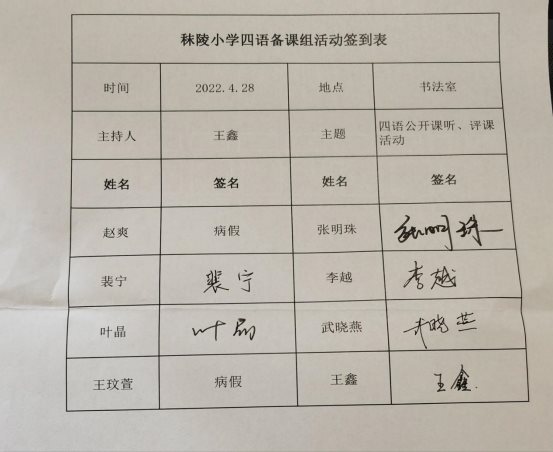 秣陵小学四语备课组活动签到表
时间 2022.4.28 地点 书法室
主持人 王鑫 主题 四语公开课听、评课
活动
姓名 签名 姓名 签名
赵爽 病假 张明珠 张明珠
裴宁 裴宁 李越 李越
叶晶 叶晶 武晓燕 武晓燕
王玟萱 病假 王鑫 王鑫